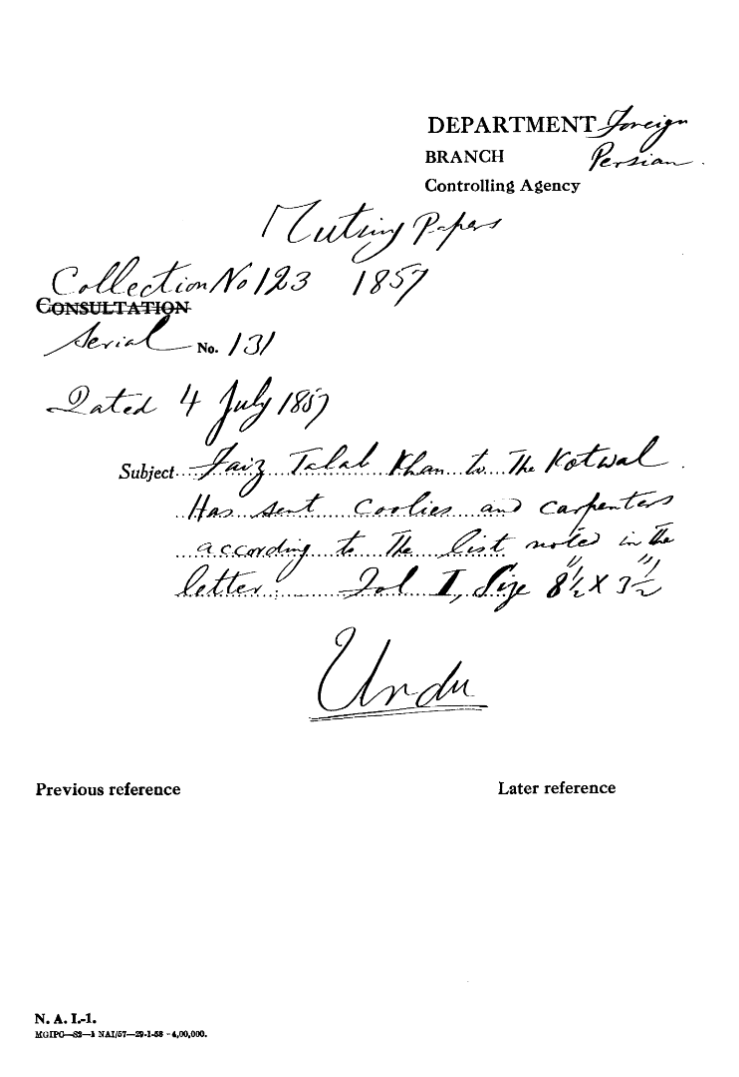 DEPARTMENT Foreign
BRANCH Persian.
Controlling Agency
Mutiny Papers
Collection No 123 1857
CONSULTATION
Serial No. 131
Dated 4 July 1857
Subject Faiz Talab Khan to The Kotwal.
Has sent Coolies and carpenters
according to The list noted in the
letter. Fol I, Size 8½" X 3½"
Urdu
Previous reference Later reference
N. A. I.-1.
MGIPC—S2—1 NAI/57—29-1-58 - 4,00,000.